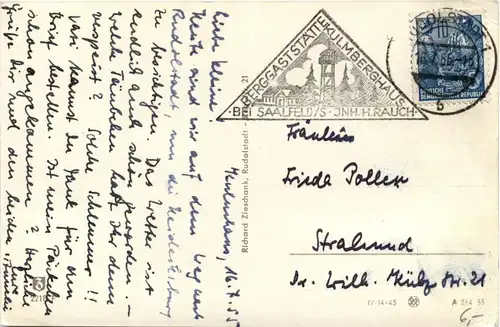 Kulmberghaus, 16.4.55
Liebe kleine
Heute sind wir auf dem Weg nach
Rudolstadt, um die Heidecksburg
zu besichtigen. Das Wetter ist
endlich auch schön geworden. –
Welche Täubchen habt Ihr denn
verspeist? Solche Schlemmer!!
Vati kannst Du Dank für den
Brief bestellen. Ist mein Päckchen
schon angekommen? Herzliche
Grüße Dir und den beiden
BERGGASTSTÄTTE KULMBERGHAUS
BEI SAALFELD/S · JNH. H. RAUCH
Richard Zieschank, Rudolstadt - 21
RUDOLSTADT 1
10
DEUTSCHE
DEMOKRATISCHE REPUBLIK
b
Fräulein
Frida Poller
Stralsund
Dr. Wilh. Külz Str. 21
IV-14-45
A 284 55
6,-